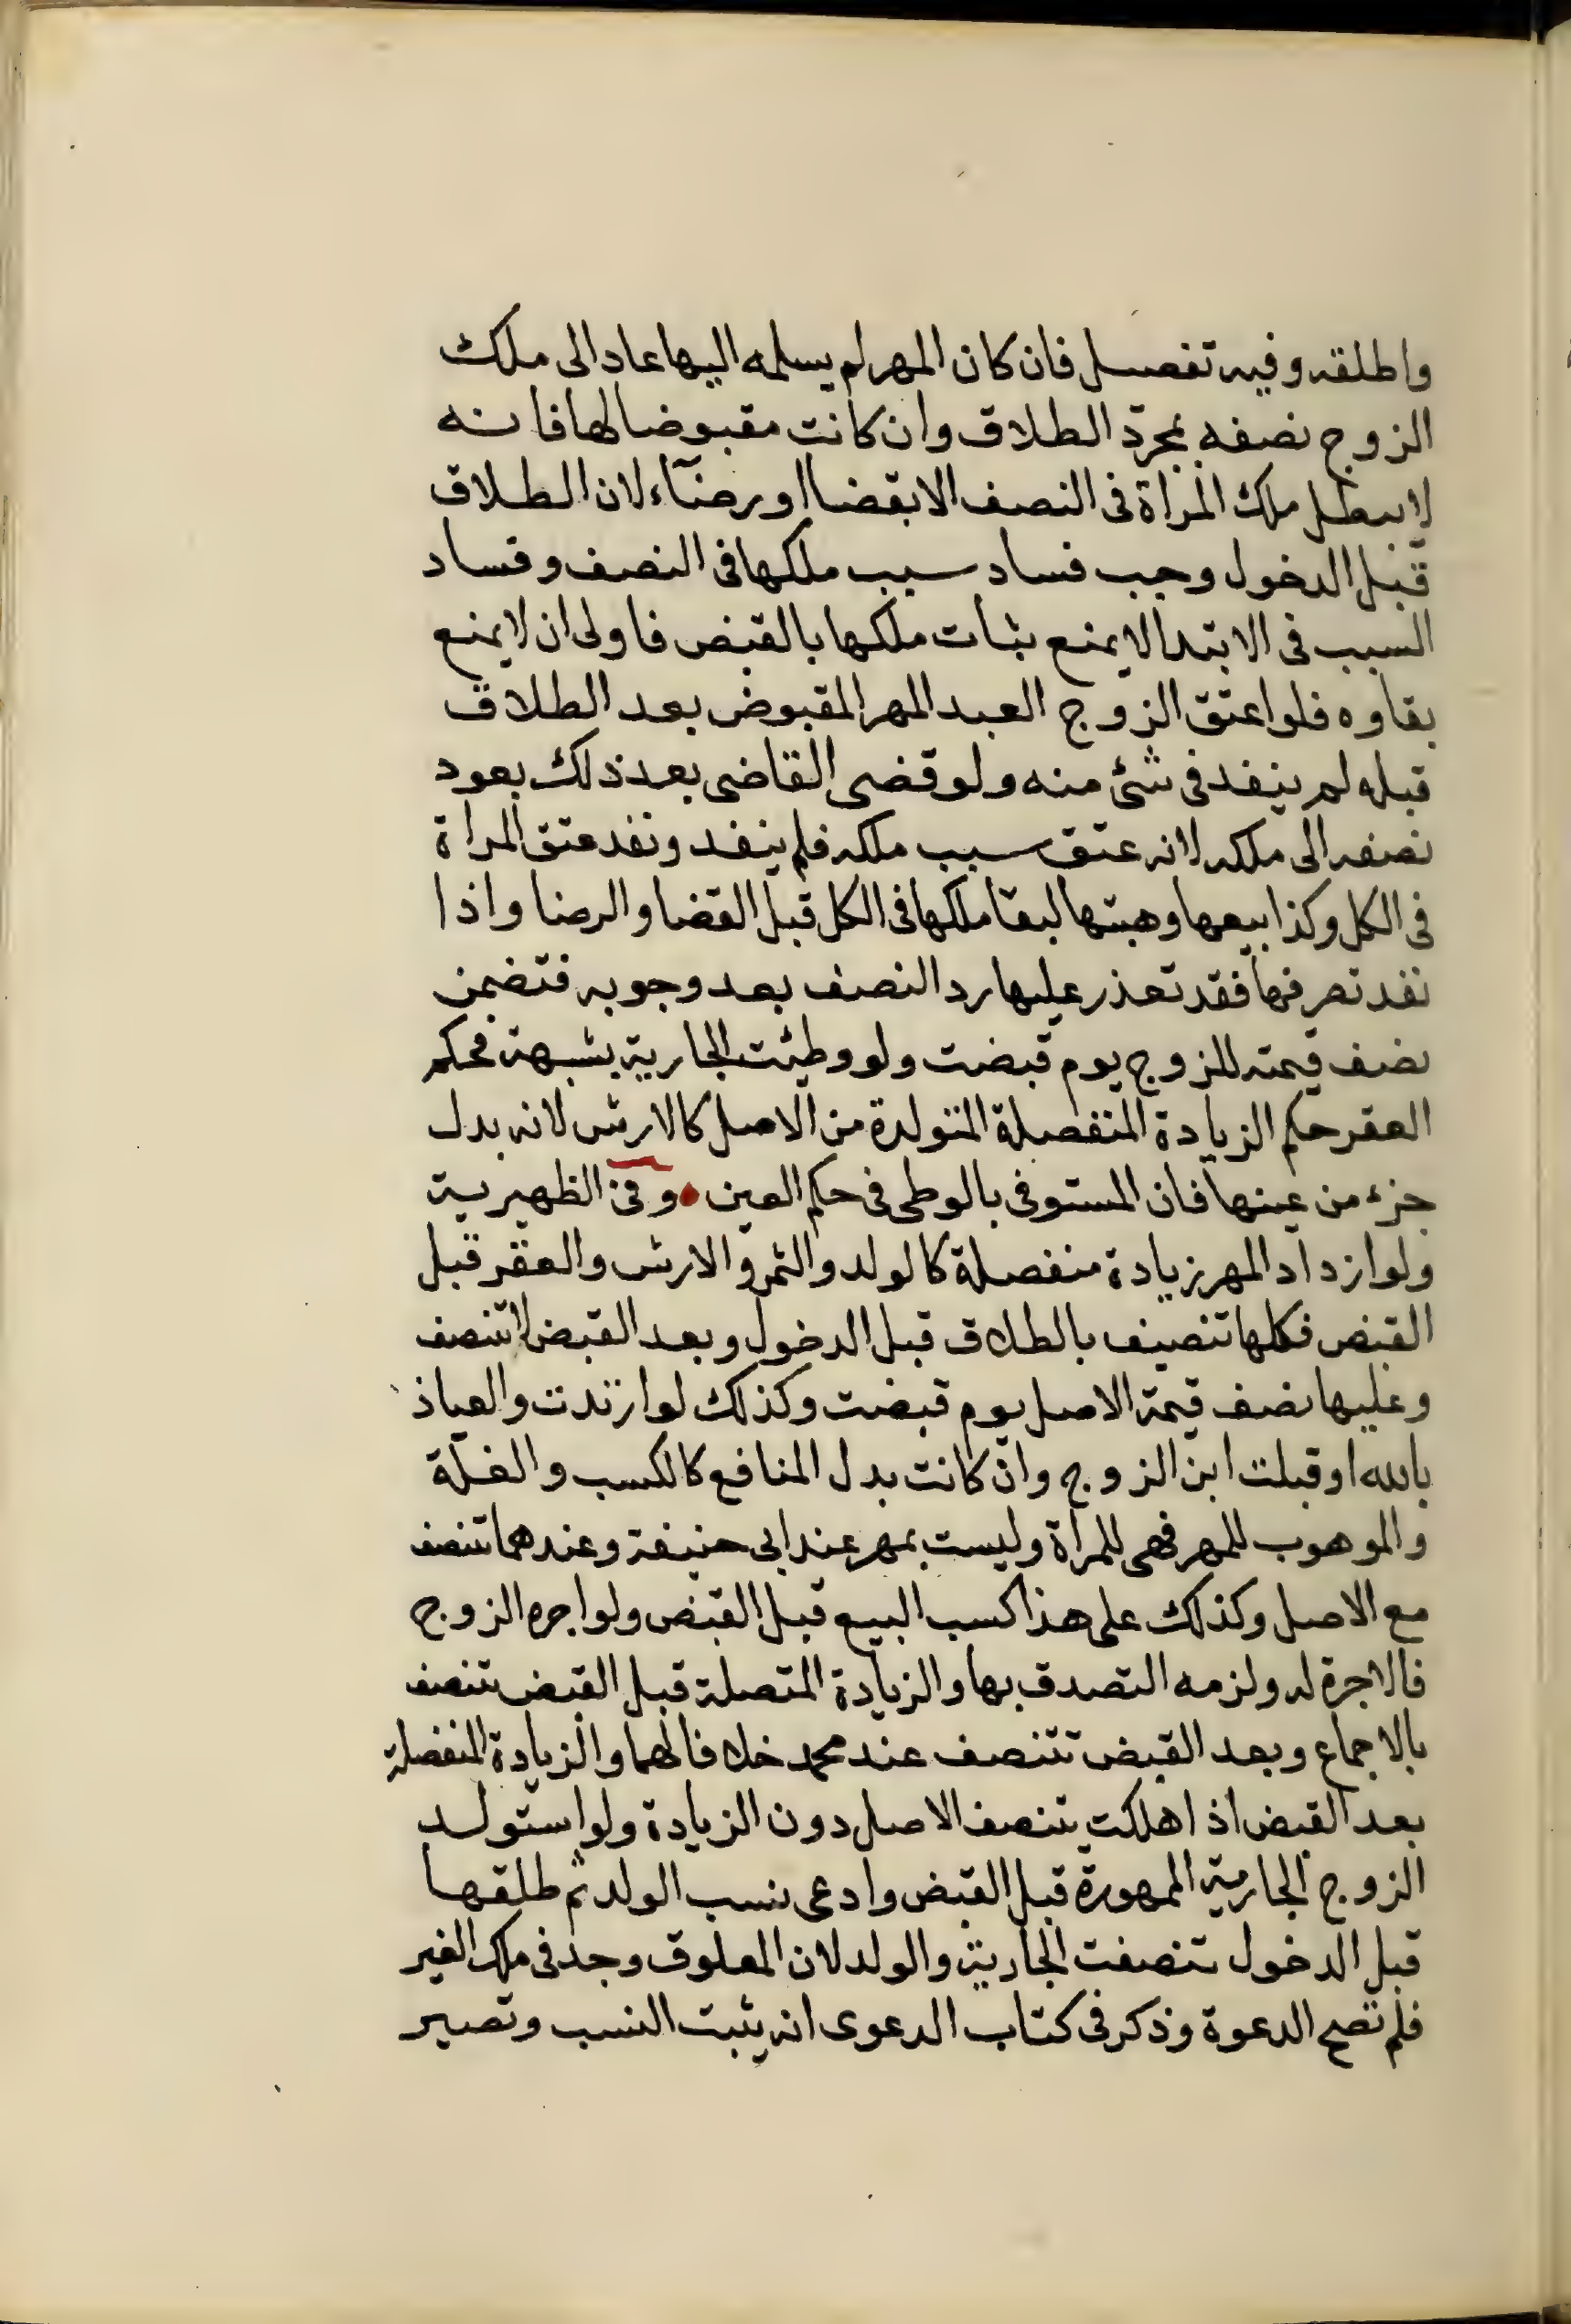 واطلقه وفيه تفصيل فان كان المهر لم يسلمه اليها عاد الى ملك
الزوج نصفه بمجرد الطلاق وان كانت مقبوضا لها فانه
لا يبطل ملك المراة فى النصف الا بقضا او رضآء لان الطلاق
قبل الدخول وجب فساد سبب ملكها فى النصف وفساد
السبب فى الابتدا لا يمنع ثبات ملكها بالقبض فاولى ان لا يمنع
بقاوه فلو اعتق الزوج العبد المهر المقبوض بعد الطلاق
قبله لم ينفد فى شئ منه ولو قضى القاضى بعد ذلك بعود
نصفه الى ملكه لانه عتق سبب ملكه فلم ينفد ونفد عتق المراة
فى الكل وكذا بيعها وهبتها لبقا ملكها فى الكل قبل القضا والرضا واذا
نفد تصرفها فقد تعذر عليها رد النصف بعد وجوبه فتضمن
نصف قيمته للزوج يوم قبضت ولو وطئت الجارية بشبهة فحكم
العقر حكم الزيادة المنفصلة المتولدة من الاصل كالارش لانه بدل
جزء من عينها فان المستوفى بالوطى فى حكم العين وفى الظهيرية
ولو ازداد المهر زيادة منفصلة كالولد والثمر والارش والعقر قبل
القبض فكلها تنصيف بالطلاق قبل الدخول وبعد القبض لا تنصف
وعليها نصف قيمة الاصل يوم قبضت وكذلك لو ارتدت والعياذ
بالله او قبلت ابن الزوج وان كانت بدل المنافع كالكسب والغلة
والموهوب للمهر فهى للمراة وليست بمهر عند ابى حنيفة وعندهما تنصف
مع الاصل وكذلك على هذا كسب البيع قبل القبض ولو اجره الزوج
فالاجرة له ولزمه التصدق بها والزيادة المتصلة قبل القبض تنصف
بالاجماع وبعد القبض تتنصف عند محمد خلافا لهما والزيادة المنفصلة
بعد القبض اذا هلكت تنصف الاصل دون الزيادة ولو استولد
الزوج الجارية الممهورة قبل القبض وادعى نسب الولد ثم طلقها
قبل الدخول تنصفت الجارية والولد لان المعلوق وجد فى ملك الغير
فلم تصح الدعوة وذكر فى كتاب الدعوى انه يثبت النسب وتصير